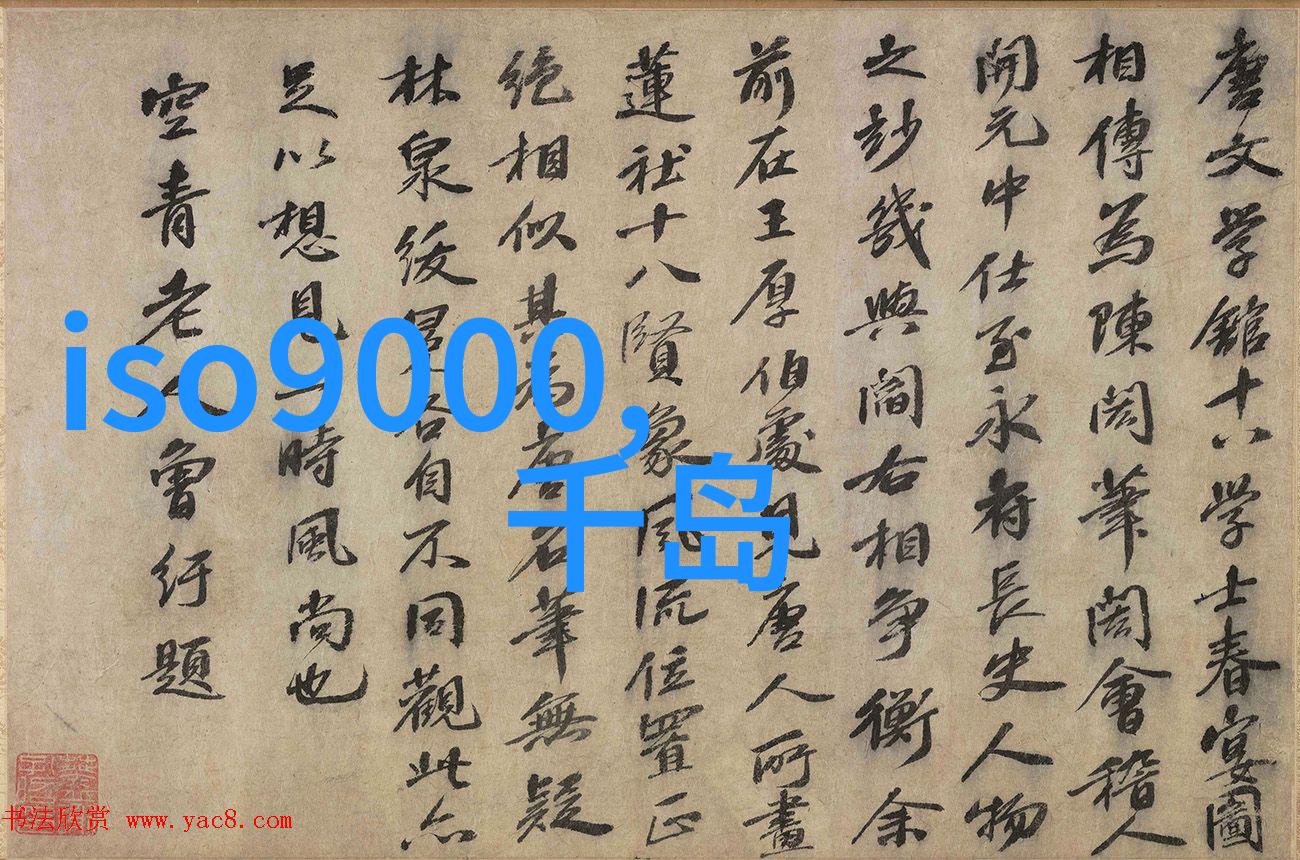 唐文学館十八学士春宴圖
相傳為陳閎筆閎會稽人
開元中仕至永府長史人物
之妙幾與閻右相争衡余
前在王厚伯處見唐人所畫
蓮社十八賢象風流位置正
絶相似其為唐名筆無疑
林泉緩步各自不同觀此亦
足以想見一時風尚也
空青老人曾紆題
iso9000,
千岛
书法欣赏 www.yac8.com